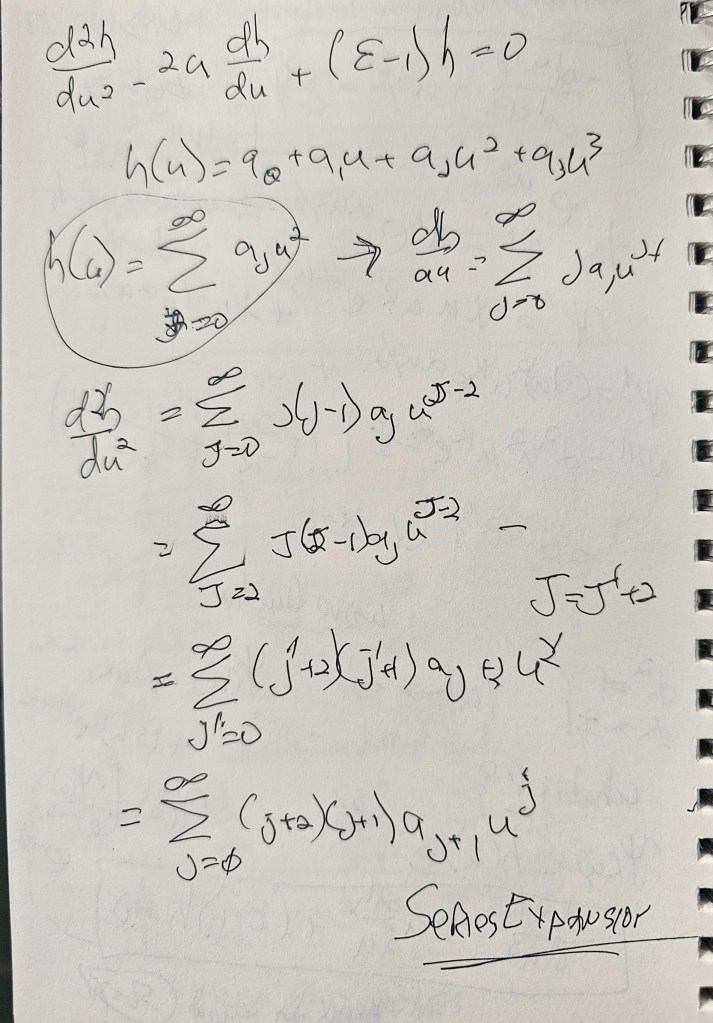 d²h/du² - 2a dh/du + (ε-1)h = 0
h(u) = a₀ + a₁u + aⱼu² + a₃u³
h(u) = ∑_{j=0}^{∞} aⱼu² → dh/du = ∑_{J=0}^{∞} J aⱼ u^{J-1}
d²h/du² = ∑_{J=0}^{∞} J(J-1) aⱼ u^{J-2}
= ∑_{J=2}^{∞} J(J-1) aⱼ u^{J-2} -
J = J'+2
= ∑_{J'=0}^{∞} (j'+2)(j'+1) a_{j+2} u^{j'}
= ∑_{J=0}^{∞} (j+2)(j+1) a_{J+1} u^{j}
Series Expansion